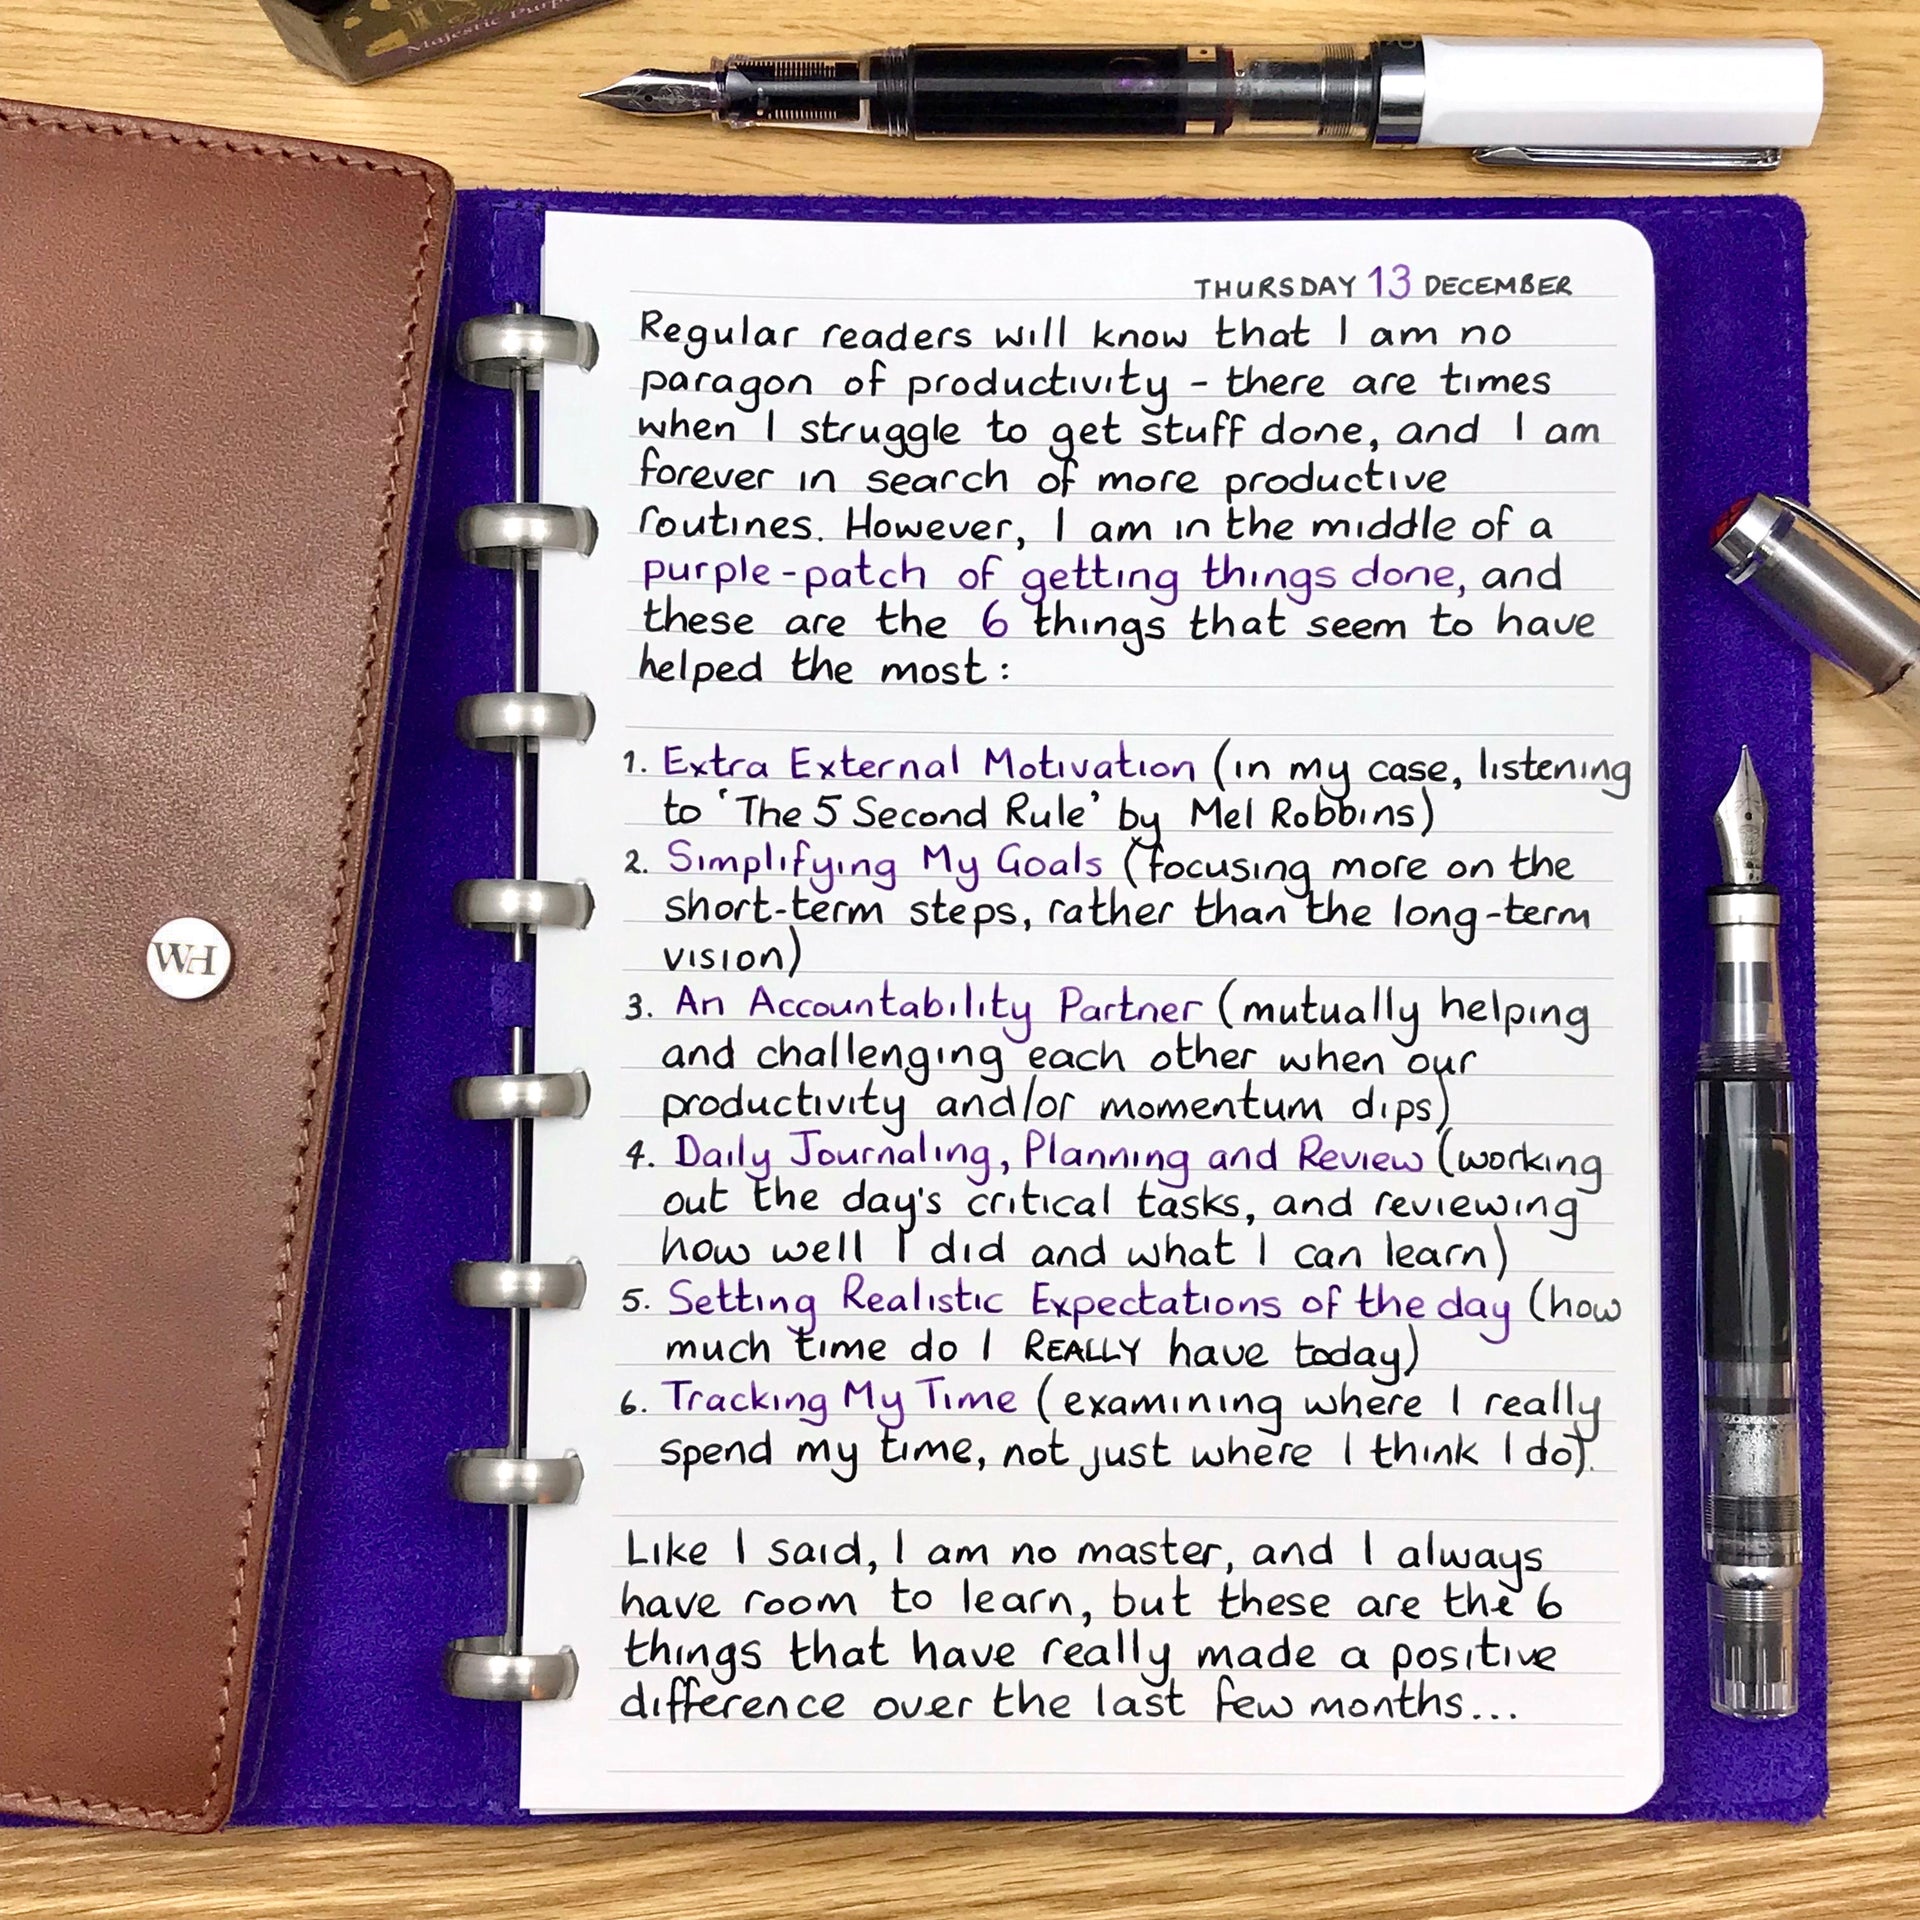 Majestic Purp
THURSDAY 13 DECEMBER
Regular readers will know that I am no
paragon of productivity - there are times
when I struggle to get stuff done, and I am
forever in search of more productive
routines. However, I am in the middle of a
purple-patch of getting things done, and
these are the 6 things that seem to have
helped the most:
1. Extra External Motivation (in my case, listening
to 'The 5 Second Rule' by Mel Robbins)
2. Simplifying My Goals (focusing more on the
short-term steps, rather than the long-term
vision)
3. An Accountability Partner (mutually helping
and challenging each other when our
productivity and/or momentum dips)
4. Daily Journaling, Planning and Review (working
out the day's critical tasks, and reviewing
how well I did and what I can learn)
5. Setting Realistic Expectations of the day (how
much time do I REALLY have today)
6. Tracking My Time (examining where I really
spend my time, not just where I think I do).
Like I said, I am no master, and I always
have room to learn, but these are the 6
things that have really made a positive
difference over the last few months...
WH